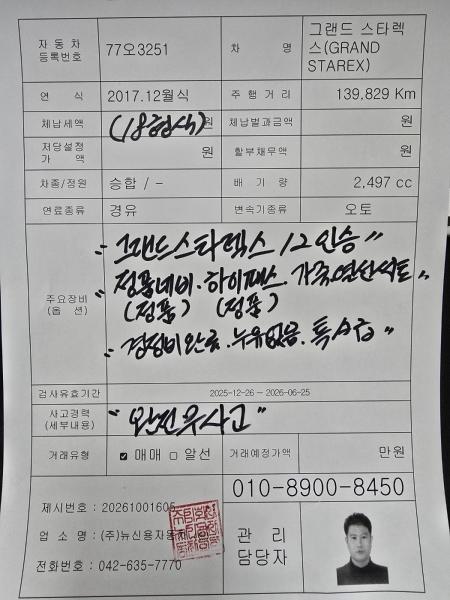 자동차 등록번호 77오3251 차 명 그랜드 스타렉스(GRAND STAREX)
연 식 2017.12월식 주행거리 139,829 Km
(18형식)
체납세액 원 체납범과금액 원
저당설정가액 원 할부채무액 원
차종/정원 승합 / - 배 기 량 2,497 cc
연료종류 경유 변속기종류 오토
주요장비(옵 션)
"그랜드스타렉스 12인승"
정품네비. 하이패스. 가죽열선시트"
(정품) (정품)
"경정비완료. 누유없음. 특A급"
검사유효기간 2025-12-26 ~ 2026-06-25
사고경력(세부내용) "완전무사고"
거래유형 매매 알선 거래예정가액 만원
010-8900-8450
제시번호 : 20261001605
업 소 명 : (주)뉴신용자동차
전화번호 : 042-635-7770
관 리
담당자